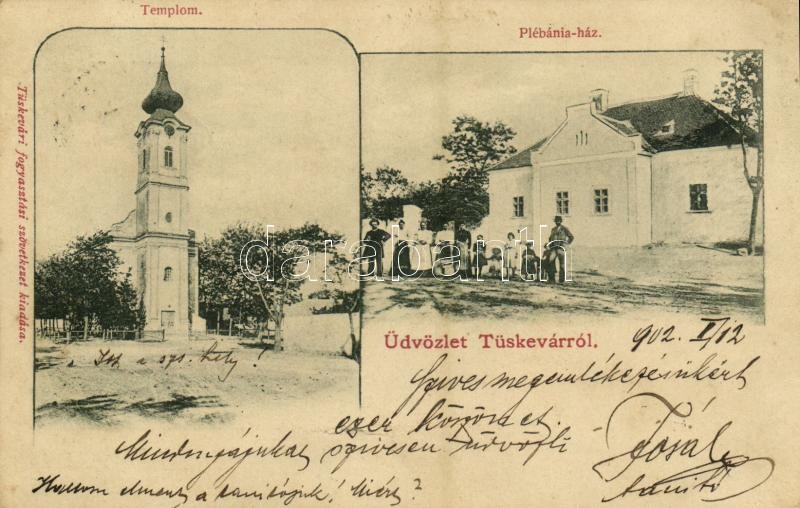 Templom.
Plébánia-ház.
Tüskevári fogyasztási szövetkezet kiadása.
darabanth
Üdvözlet Tüskevárról.
902. II/12
Szives megemlékezésükért
ezer köszönet
Mindnyájukat szivesen üdvözli
Jósal
tanitó
Hallom elment a tanitójuk! Miért?